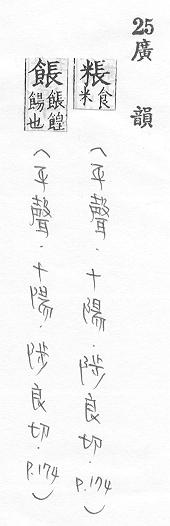 25廣韻
粻食米(平聲.十陽.陟良切.P.174)
餦餦餭餳也(平聲.十陽.陟良切.P.174)